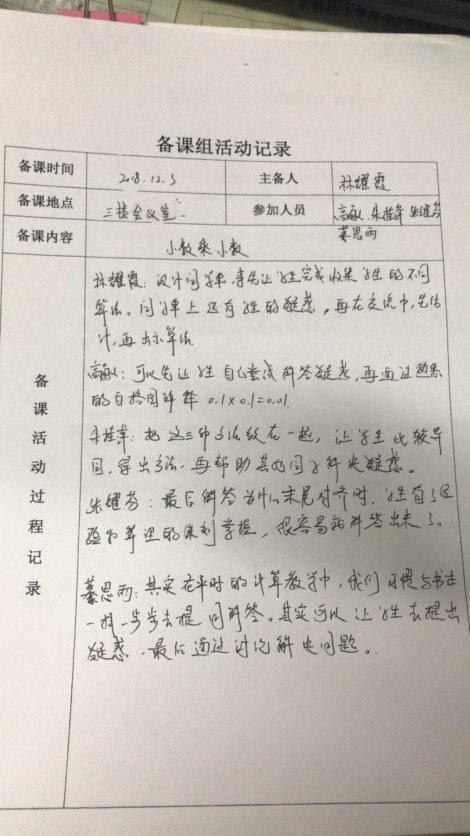 备课组活动记录
备课时间 2018.12.3 主备人 林耀霞
备课地点 三楼会议室 参加人员 朱桂苹 朱耀芬
慕思雨
备课内容 小数乘小数
备课活动过程记录
林耀霞:设计问学单,首先让学生完成收集学生的不同
算法。问学单上还有学生的疑惑,再在交流中,先估
计,再出示算法
可以先让学生自己尝试解答疑惑,再通过熟悉
的百格图解释 0.1×0.1=0.01
朱桂苹:把这三种方法放在一起,让学生比较异
同,得出方法,再帮助其他同学解决疑惑。
朱耀芬:最后解答为什么末尾对齐时,学生有了经
验和算理的深刻掌握,很容易就解答出来了。
慕思雨:其实在平时的计算教学中,我们习惯与书上
一样一步步去提问解答。其实可以让学生去提出
疑惑,最后通过讨论解决问题。